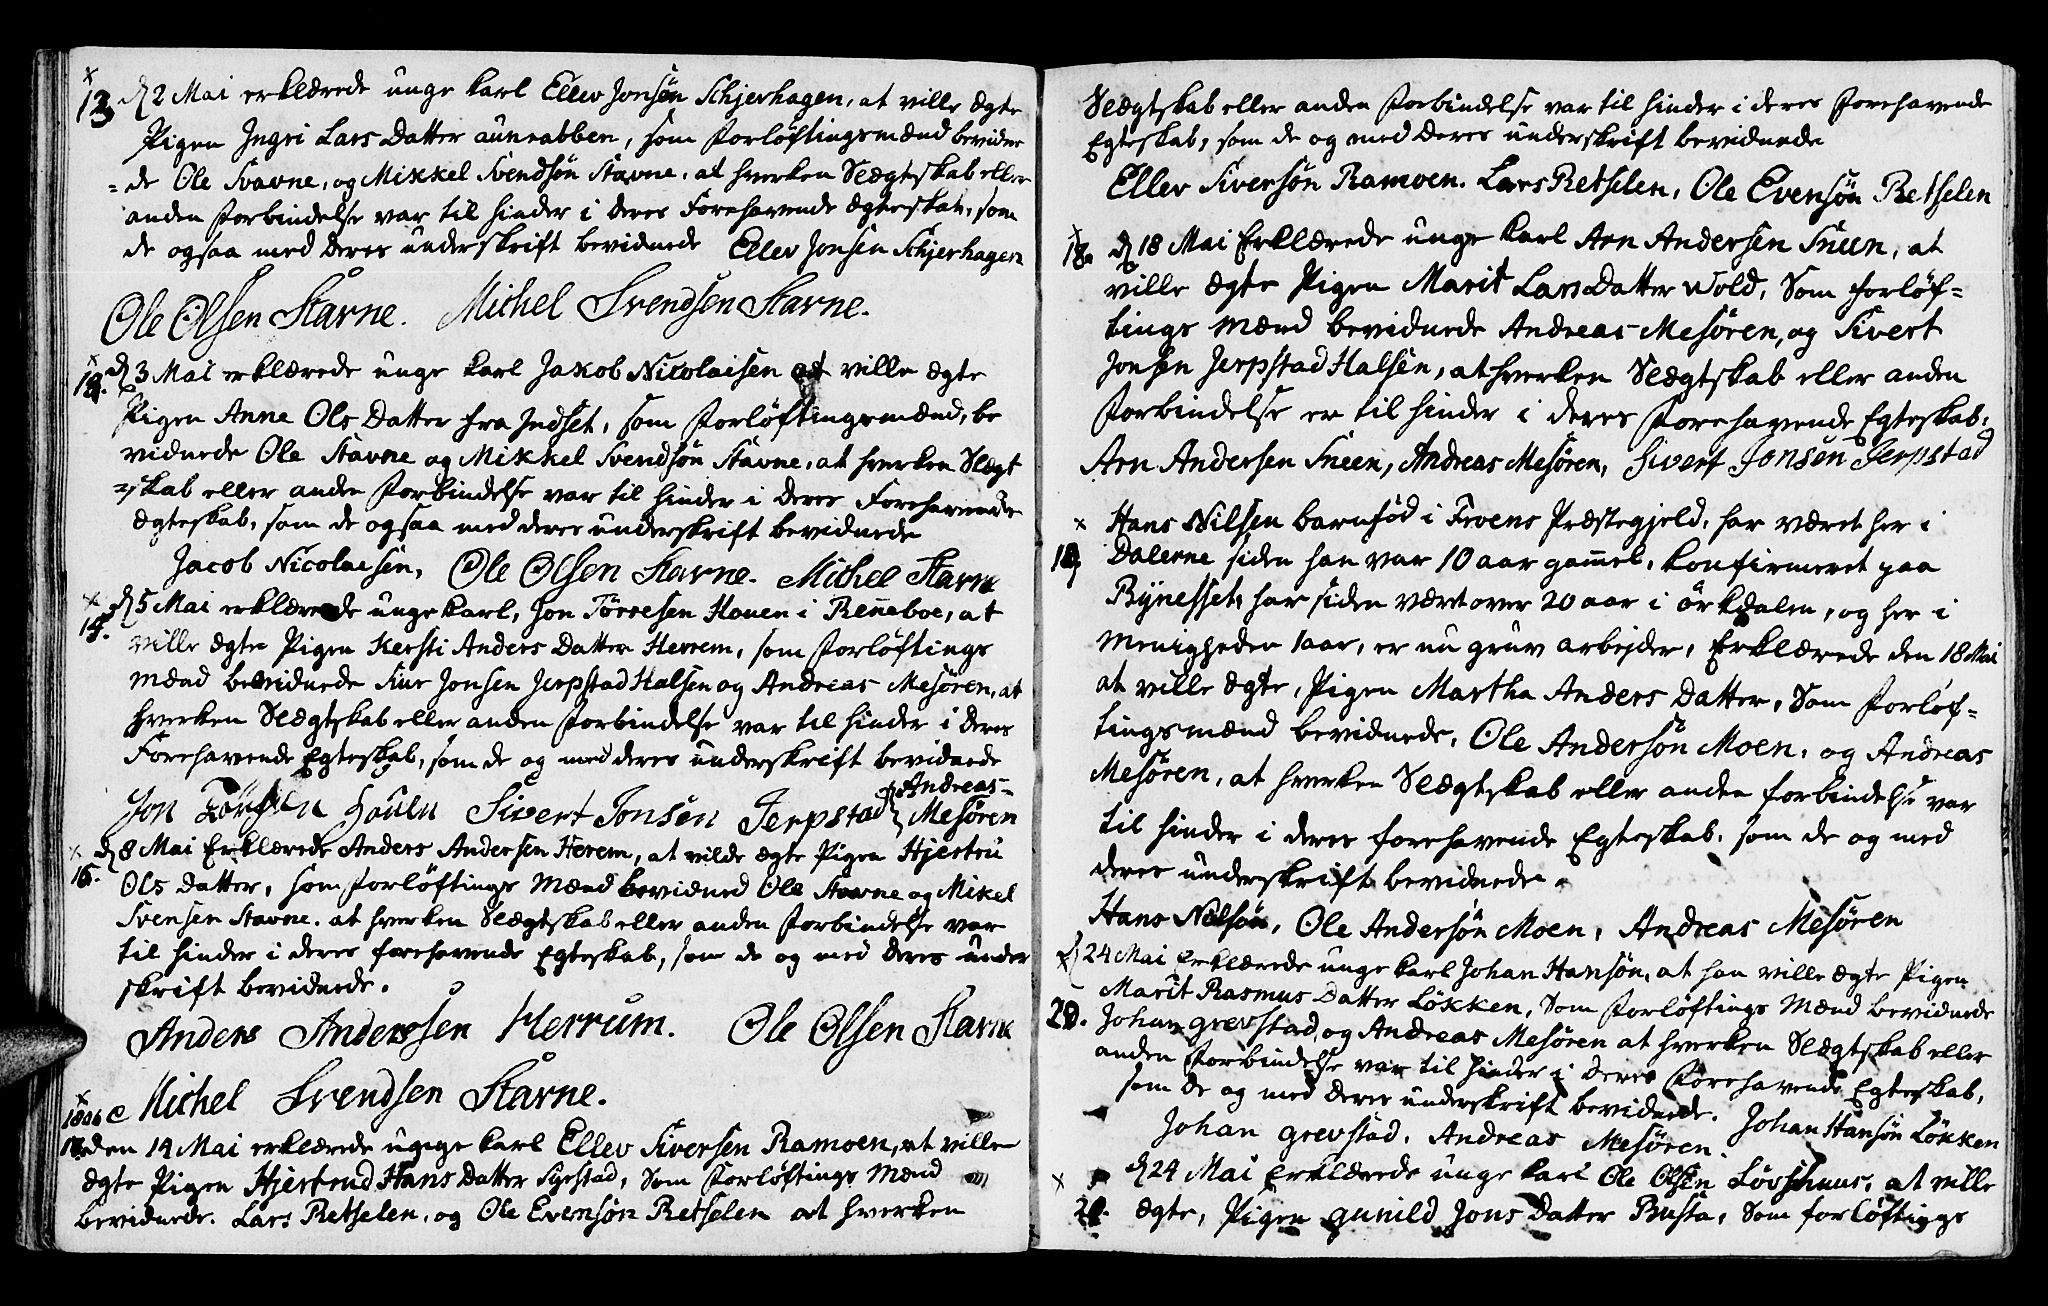 13 d 2 Mai erklærede unge karl Ellev Jonsen Schjerhagen, at ville ægte
Pigen Ingri Lars Datter auneabben, som Forløftingsmænd bevidne
=de Ole Svavne, og Mikkel Svendsøn Stavne, at hverken Slægteskab eller
anden Forbindelse var til hinder i deres Forehavende ægteskab, som
de ogsaa med deres underskrift bevidnede Ellev Jonsen Schjerhagen
Ole Olsen Stavne. Michel Svendsen Stavne.
d 3 Mai erklærede unge karl Jakob Nicolaisen at ville ægte
Pigen Anne Ols Datter fra Indset, som Forløftingsmænd, be
vidnede Ole Stavne og Mikkel Svendsøn Stavne, at hverken Slægt
=skab eller anden Forbindelse var til hinder i deres Forehavende
ægteskab, som de ogsaa med deres underskrift bevidnede
Jacob Nicolaisen, Ole Olsen Stavne. Michel Stavne
d 5 Mai erklærede unge karl, Jon Tørresen Houen i Renneboe, at
ville ægte Pigen Kersti Anders Datter Herrem, som Forløftings
mænd bevidnede Siver Jonsen Jerpstad Halsen og Andreas Mesøren, at
hverken Slægtskab eller anden Forbindelse var til hinder i deres
Forehavende Egteskab, som de og med deres underskrift bevidnede
Jon Houen Sivert Jonsen Jerpstad Andreas
Mesøren
d 8 Mai Erklærede Anders Andersen Herem, at vilde ægte Pigen Hjertru
16. Ols Datter, som Forløftings Mænd bevidned Ole Stavne og Mikel
Svensen Stavne. at hverken Slægtskab eller anden Forbindelse var
til hinder i deres forehavende Egteskab, som de og med deres under
skrift bevidnede.
Anders Anderssen Herrum. Ole Olsen Stavne
Michel Svendsen Stavne.
den 14 Mai erklærede ugige karl Ellev Siversen Ramoen, at ville
ægte Pigen Hjertrud Hans Datter, Som Forløftings Mænd
bevidnede. Lars Retselen, og Ole Evensøn Retselen at hverken
Slægtskab eller anden Forbindelse var til hinder i deres Forehavende
Egteskab, som de og med deres underskrift bevidnede
Ellev Siversøn Ramoen. Lars Retselen, Ole Evensøn Retselen
18. d 18 Mai Erklærede unge karl Arn Andersen Sneen, at
ville ægte Pigen Marit Lars Datter Wold, Som forløf=
tings mænd bevidnede Andreas Mesøren, og Sivert
Jonsen Jerpstad Halsen, at hverken Slægtskab eller anden
Forbindelse er til hinder i deres Forehavende Egteskab,
Arn Andersen Sneen, Andreas Mesøren, Sivert Jonsen Jerpstad
Hans Nilsen barnfød i Froens Præstegjeld, har været her i
Dalerne siden han var 10 aar gammel, konfirmeret paa
Bynesset, har siden været over 20 aar i ørkdalen, og her i
menigheden 1 aar, er nu gruv arbejder, Erklærede den 18 Mai
at ville ægte, Pigen Martha Anders Datter, Som Forløf=
tingsmænd bevidnede, Ole Andersøn Moen, og Andreas
Mesøren, at hverken Slægtskab eller anden forbindelse var
til hinder i deres forehavende Egteskab, som de og med
deres underskrift bevidnede.
Hans Nilsøn, Ole Andersøn Moen, Andreas Mesøren
d 24 Mai erklærede unge karl Johan Hansøn, at han ville ægte Pigen
Marit Rasmus Datter Løkken, Som Forløftings Mænd bevidnede
20. Johan grevstad, og Andreas Mesøren at hverken Slægtskab eller
anden Forbindelse var til hinder i deres Forehavende Egteskab,
som de og med deres underskrift bevidnede. Johan Hansøn Løkken
Johan grevstad. Andreas Mesøren.
d 24 Mai Erklærede unge karl Ole Olsen Løvshuus, at ville
ægte, Pigen gunild Jons Datter Busta, Som forløftings